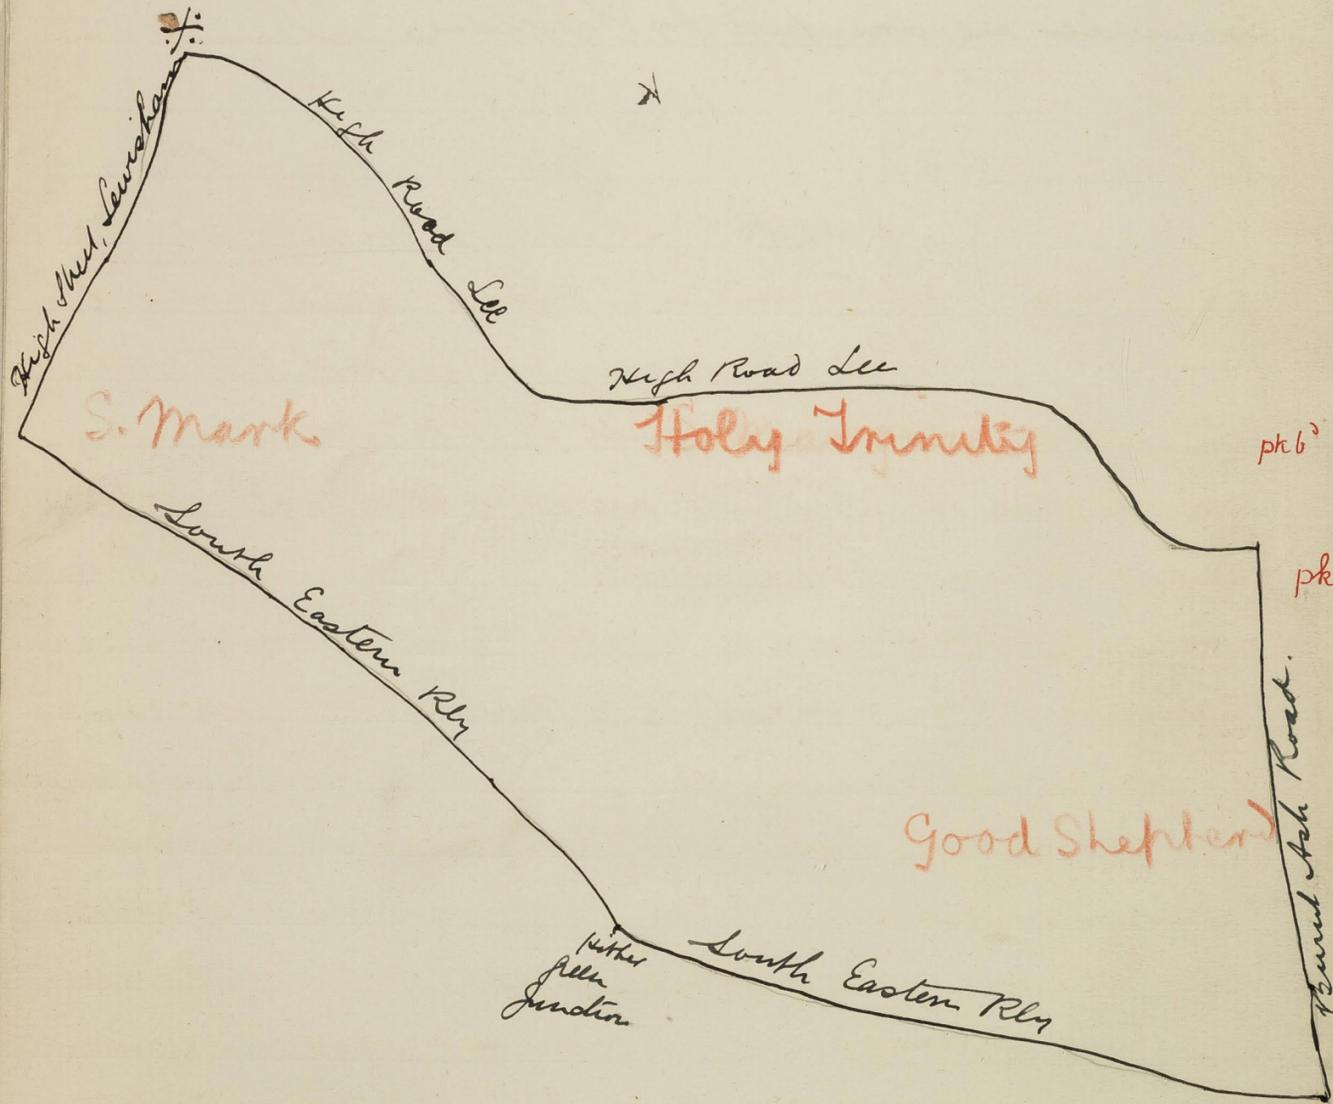 High Street, Lewisham
High Road Lee
High Road Lee
S. Mark
Holy Trinity
pk b
pk
South Eastern Rly
Burnt Ash Road.
Good Shepherd
Hither
Green
Junction
South Eastern Rly